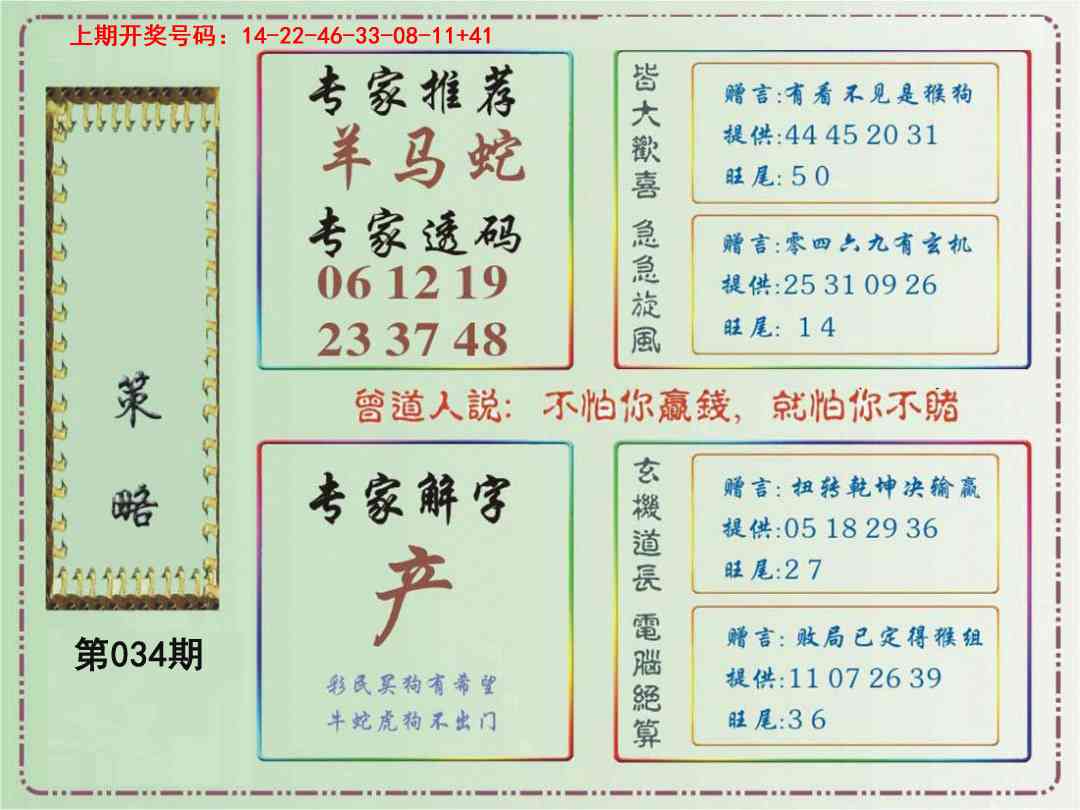 上期开奖号码：14-22-46-33-08-11+41
策
略
第034期
专家推荐
羊马蛇
专家透码
06 12 19
23 37 48
皆大歡喜
赠言:有看不见是猴狗
提供:44 45 20 31
旺尾: 5 0
急急旋風
赠言:零四六九有玄机
提供:25 31 09 26
旺尾: 1 4
曾道人説：不怕你贏錢，就怕你不賭
专家解字
产
彩民买狗有希望
牛蛇虎狗不出门
玄機道長
赠言: 扭转乾坤决输赢
提供:05 18 29 36
旺尾:2 7
電腦絕算
赠言: 败局已定得猴组
提供:11 07 26 39
旺尾:3 6